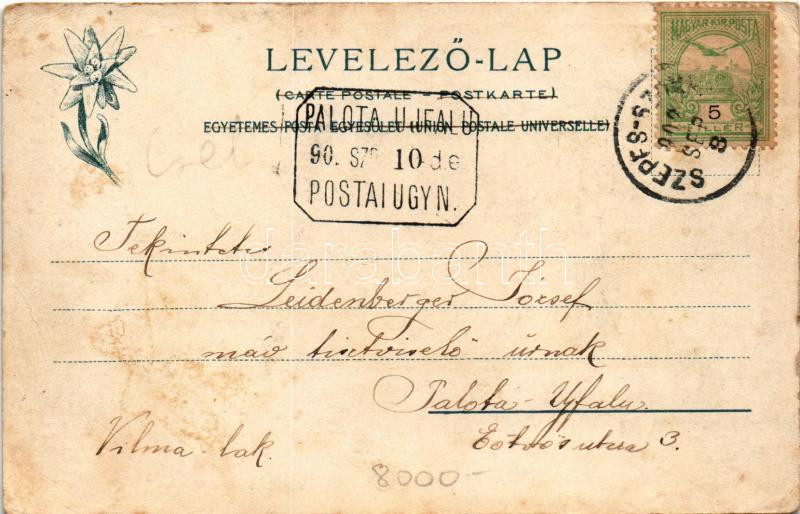 LEVELEZŐ-LAP
(CARTE POSTALE – POSTKARTE)
EGYETEMES POSTA EGYESÜLET (UNION POSTALE UNIVERSELLE)
MAGYAR KIR. POSTA
5
FILLÉR
SZEPES-SZ
SEP
8
PALOTA UJFALU
90. SZP 10 de
POSTAIUGYN.
Tekintetes
Leidenberger József
máv tisztviselő úrnak
Palota-Ujfalu.
Vilma-lak.
Eötvös utcza 3.
8000-
darabanth